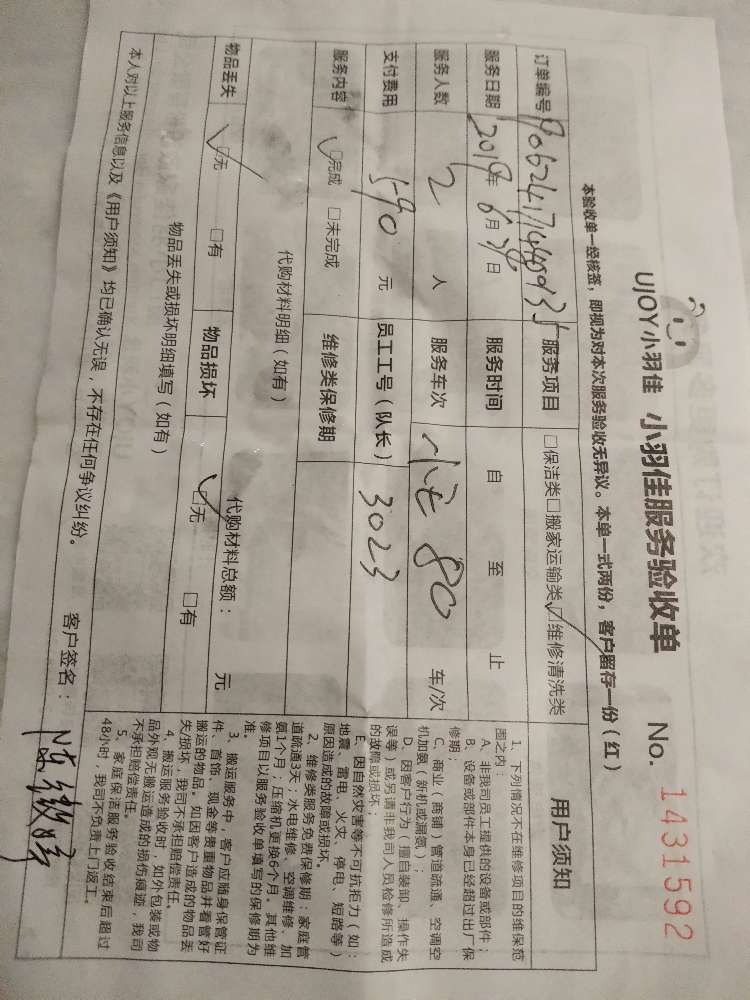 UJOY小羽佳 小羽佳服务验收单 No. 1431592
本验收单一经核签，即视为对本次服务验收无异议。本单一式两份，客户留存一份（红）
订单编号 服务项目 □保洁类□搬家运输类□维修清洗类
服务日期 2019年 6月 日 服务时间 自 至 止
服务人数 2 人 服务车次 80 车/次
支付费用 590 元 员工工号（队长） 3023
服务内容 □完成 □未完成 维修类保修期
代购材料明细（如有）
代购材料总额： 元
物品丢失 □无 □有 物品损坏 □无 □有
物品丢失或损坏明细填写（如有）
本人对以上服务信息以及《用户须知》均已确认无误，不存在任何争议纠纷。
客户签名：
用户须知
1、下列情况不在维修项目的维保范
围之内：
A、非我司员工提供的设备或部件；
B、设备或部件本身已经超过出厂保
修期；
C、商业（商铺）管道疏通、空调空
机加氨（新机或漏氨）；
D、因客户行为（擅自装卸、操作失
误等）或另请非我司人员检修所造成
的故障或损坏；
E、因自然灾害等不可抗拒力（如：
地震、雷电、火灾、停电、短路等）
原因造成的故障或损坏。
2、维修类服务免费保修期：家庭管
道疏通3天；水电维修、空调维修、加
氨1个月；压缩机更换6个月。其他维
修项目以服务验收单填写的保修期为
准。
3、搬运服务中，客户应随身保管证
件、首饰、现金等贵重物品并看管好
搬运的物品。如因客户造成的物品丢
失/损坏，我司不承担赔偿责任。
4、搬运服务验收时，如外包装或物
品外观无搬运造成的损伤痕迹，我司
不承担赔偿责任。
5、家庭保洁服务验收结束后超过
48小时，我司不负责上门返工。